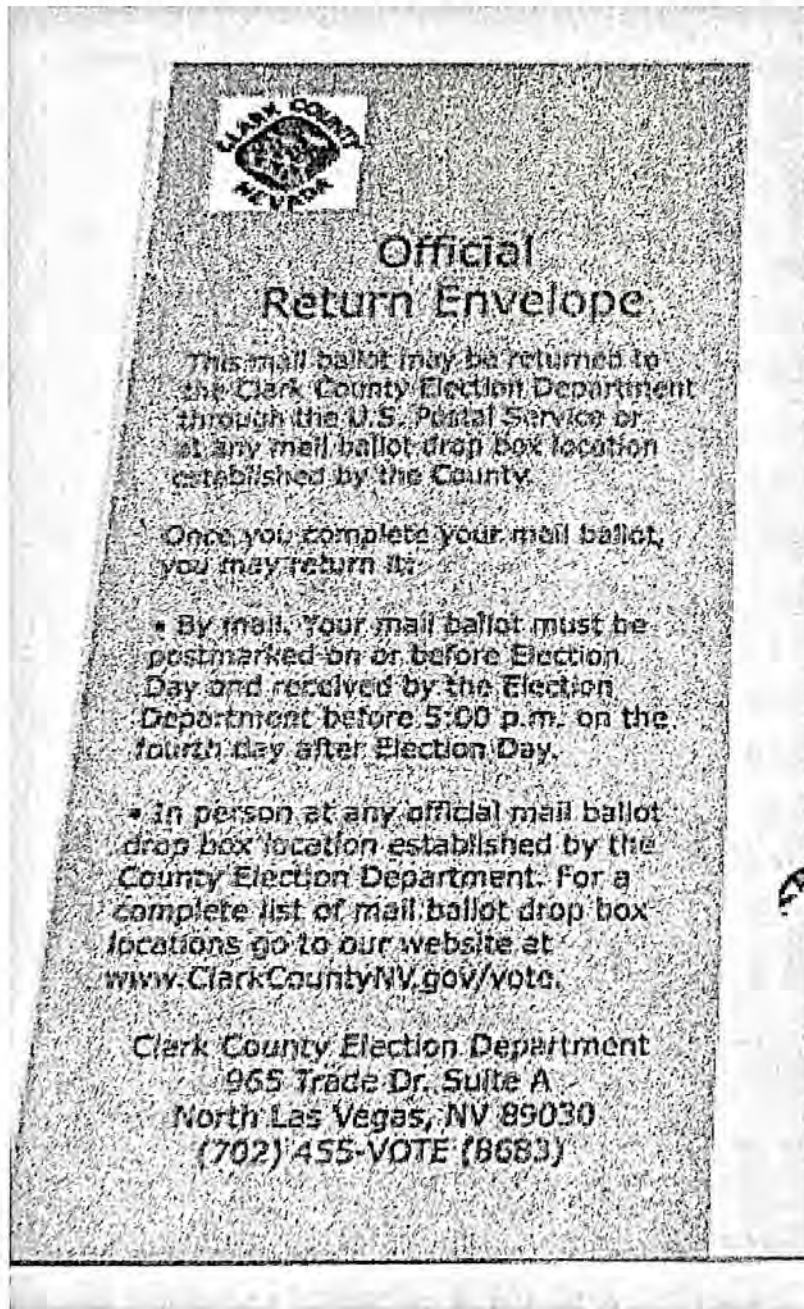 CLARK COUNTY
NEVADA
Official
Return Envelope
This mail ballot may be returned to
the Clark County Election Department
through the U.S. Postal Service or
at any mail ballot drop box location
established by the County.
Once you complete your mail ballot,
you may return it:
• By mail. Your mail ballot must be
postmarked on or before Election
Day and received by the Election
Department before 5:00 p.m. on the
fourth day after Election Day.
• In person at any official mail ballot
drop box location established by the
County Election Department. For a
complete list of mail ballot drop box
locations go to our website at
www.ClarkCountyNV.gov/vote.
Clark County Election Department
965 Trade Dr. Suite A
North Las Vegas, NV 89030
(702) 455-VOTE (8683)